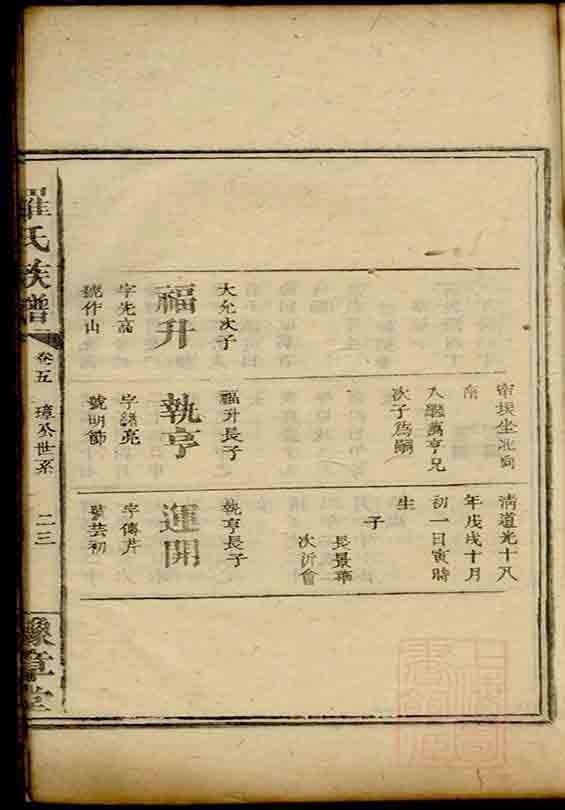 大允次子
福升
字先高
號作山
坐北向
南
入繼萬亨兄
次子爲嗣
福升長子
執亨
字緒亮
號明節
清道光十八
年戊戌十月
初一日寅時
生
子
長景華
次沂會
執亨長子
運開
字傳芹
號芸初
羅氏族譜
卷五
璋公世系
二三
豫章堂